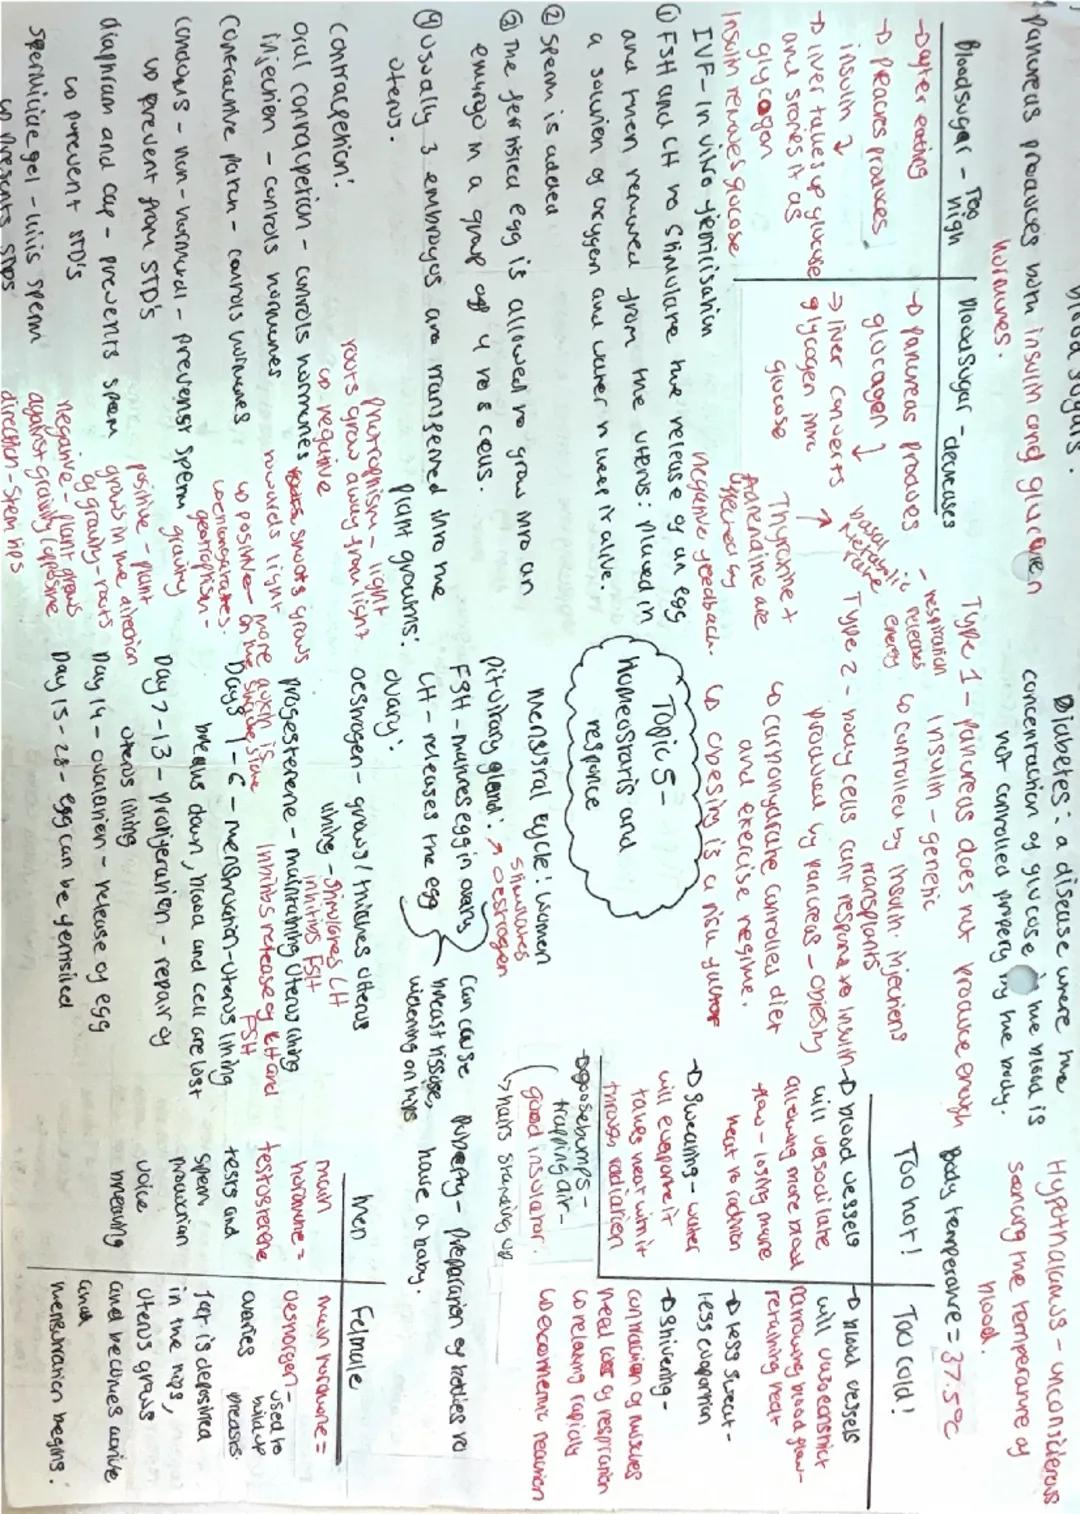 blood sugars.
Pancreas produces both insulin and glucagen
hormones.
Bloodsugar - Too high
→ after eating
→ pancres produces
insulin ↓
→ liver takes up glucose
and stores it as
glycogen
Insulin removes glucose
Bloodsugar - decreases
→ pancreas produces
glucagen ↓
→ liver converts
glycogen into
glucose
basal metabolic rate
- respiration
releases
energy
Thyroxine +
Adrenaline are
effected by
negative feedback
IVF - In vitro fertilisation
① FSH and LH to stimulate the release of an egg
and then removed from the uterus: placed in
a solution of oxygen and water to keep it alive.
② sperm is added
③ The fertilised egg is allowed to grow into an
embryo in a group of 4 to 8 cells.
④ Usually 3 embryos are transferred into the
uterus.
Contraception:
oral contraception - controls hormones
injection - controls hormones
contraceptive patch - controls hormones
condoms - non-hormonal - prevents sperm
↳ prevent from STD's
diaphram and cap - prevents sperm
↳ prevent STD's
spermicide gel - kills sperm
↳ prevents STDs
Plant growths:
Phototrophism - light
roots grow away from light
↳ negative
shoots grows
towards light
↳ positive - more auxin is
on the shade side
↳ elongates.
geotrophism -
gravity
positive - plant
grows in the direction
of gravity - roots
negative - plant grows
against gravity (opposite
direction - stem tips
Diabetes: a disease were the
concentration of glucose in the blood is
not controlled propery by the body.
Type 1 - pancreas does not produce enough
insulin - genetic
↳ controlled by insulin injections
transplants
Type 2 - body cells cant respond to insulin
produced by pancreas - obiesty
↳ carbohydrate controlled diet
and exercise regime.
↳ obesity is a risk factor
Topic 5 -
Homeostratis and
responce
Menstral cycle: women
Pituitary gland: stimulates
→ oestrogen
FSH - matures egg in ovary
LH - releases the egg
ovary:
oestrogen - grows/thickes uterus
lining - stimulates LH
inhibits FSH
progesterene - maintaining uterus lining
Inhibits release of LH and
FSH
Days 1-6 - menstruation - uterus lining
breaks down, blood and cell are lost
Day 7-13 - proliferation - repair of
uterus lining
Day 14 - ovulation - release of egg
Day 15-28 - egg can be fertilised
Hypothalamus - unconsiderous
sensing the temperature of
blood.
Body temperature = 37.5°C
Too hot!
→ blood vessels
will vasodilate
allowing more blood
flow - losing more
heat to radtion
→ Sweating - water
will evaporate it
takes heat with it
through radiation
Too cold!
→ blood vessels
will vasoconstrict
narrowing blood flow -
retaining heat
→ less sweat -
less evaportion
→ Shivering -
contraction of muscles
need lots of respiration
↳ releasing rapidly
↳ exothermic reaction
→ goosebumps -
trapping air -
good insulator.
→ hairs standing up
Can cause
breast tissue,
widening on hips
Puberty - Preparation of bodies to
have a baby.
Men
main
hormone =
testosterene
tests and
sperm
production
voice
breaking
Felmale
main hormone =
oestrogen - used to
build up
breasts.
ovaries
fat is deposited
in the hips,
uterus grows
and becomes active
and
menstruation begins.